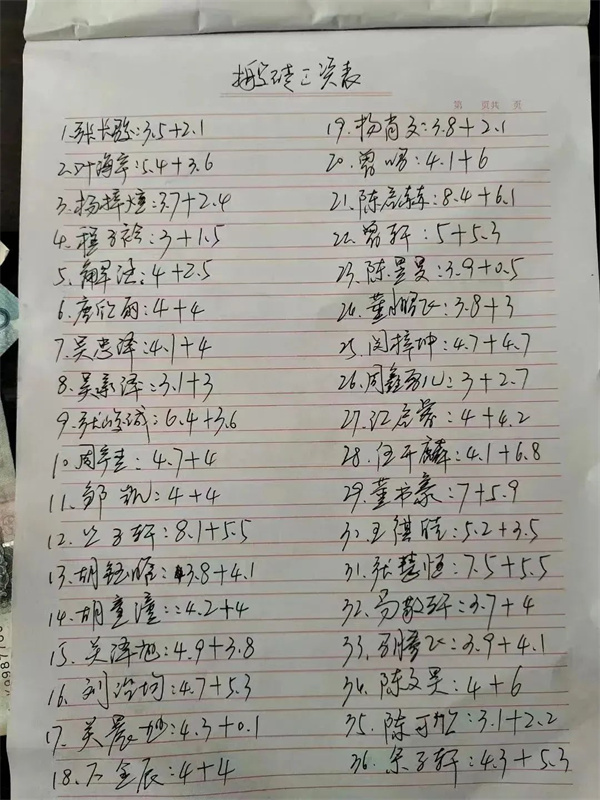 搬砖工资表
第 页共 页
1.张长胜:3.5+2.1
2.叶海军:5.4+3.6
3.杨梓煊:3.7+2.4
4.程子衿:3+1.5
5.解军法:4+2.5
6.唐欣雨:4+4
7.吴忠泽:4.1+4
8.吴亲泽:3.1+3
9.张峻诚:6.4+3.6
10.周辛圭:4.7+4
11.邹凯:4+4
12.兰子轩:8.1+5.5
13.胡钰晗:3.8+4.1
14.胡童潼:4.2+4
15.吴泽旭:4.9+3.8
16.刘浩均:4.7+5.3
17.吴晨妙:4.3+0.1
18.石金辰:4+4
19.杨肖文:3.8+2.1
20.曾鸣:4.1+6
21.陈彦霖:8.4+6.1
22.曾轩:5+5.3
23.陈昱昊:3.9+0.5
24.董鹏飞:3.8+3
25.闵梓坤:4.7+4.7
26.周鑫:3+2.7
27.江彦蓉:4+4.2
28.任千麟:4.1+6.8
29.董书豪:7+5.9
30.王祺睦:5.2+3.5
31.张慧恒:7.5+5.5
32.马敬轩:3.7+4
33.胡彦飞:3.9+4.1
34.陈文昊:4+6
35.陈可欣:3.1+2.2
36.余子轩:4.3+5.3